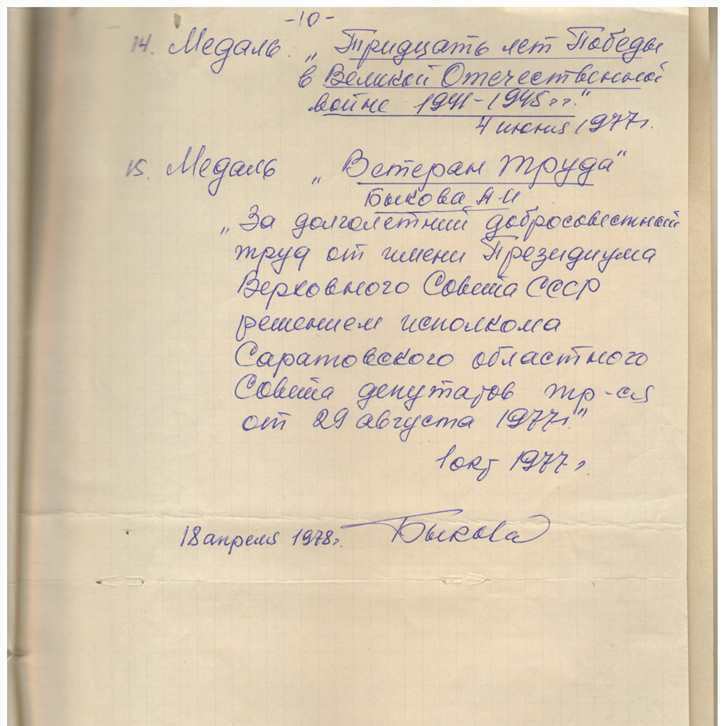 -10-
14. Медаль „Тридцать лет Победы
в Великой Отечественной
войне 1941-1945 г г."
4 июня 1977 г.
15. Медаль „Ветеран труда"
Быкова А И
„За долголетний добросовестный
труд от имени Президиума
Верховного Совета СССР
решением исполкома
Саратовского областного
Совета депутатов тр-ся
от 29 августа 1977 г."
1 окт 1977 г.
18 апреля 1978 г. Быкова